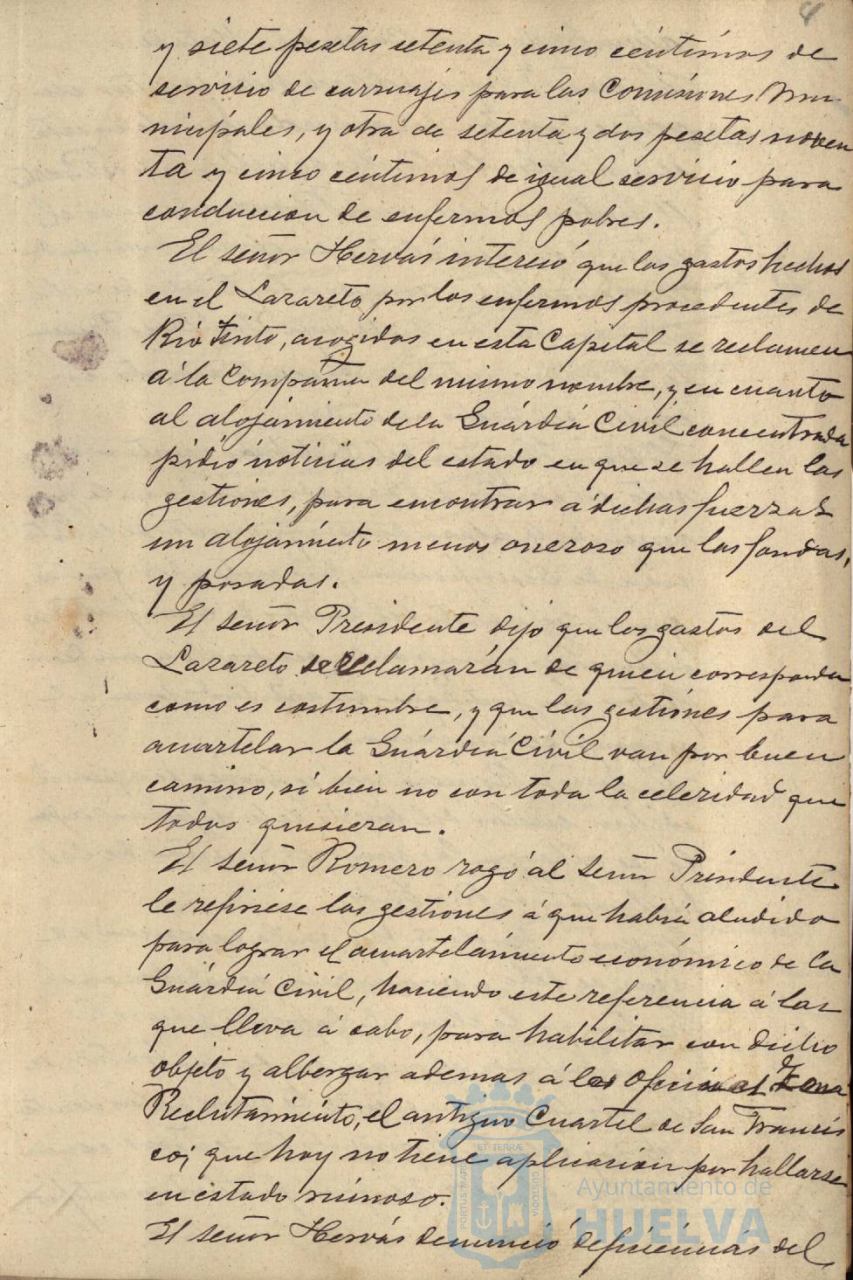 4
y siete pesetas setenta y cinco céntimos de
servicio de carruajes para las Comisiones Mu-
nicipales, y otra de setenta y dos pesetas noven
ta y cinco centimos de igual servicio para
conduccion de enfermos pobres.
El señor Hervás interesó que los gastos hechos
en el Lazareto por los enfermos procedentes de
Rio Tinto, acogidos en esta Capital se reclamen
á la Compañia del mismo nombre, y en cuanto
al alojamiento de la Guardia Civil concentrada
pidio noticias del estado en que se hallen las
gestiones, para encontrar á dichas fuerzas
un alojamiento menos oneroso que las fondas,
y posadas.
El señor Presidente dijo que los gastos del
Lazareto se reclamarán de quien corresponda
como es costumbre, y que las gestiones para
acuartelar la Guardia Civil van por buen
camino, si bien no con toda la celeridad que
todos quisieran.
El señor Romero rogó al señor Presidente
le refiriese las gestiones á que habia aludido
para lograr el acuartelamiento económico de la
Guardia Civil, haciendo este referencia á las
que lleva á cabo, para habilitar con dicho
objeto y albergar ademas á las oficinas de Zona
Reclutamiento, el antiguo Cuartel de San Francis
co; que hoy no tiene aplicacion por hallarse
en estado ruinoso.
El señor Hervás denunció deficiencias del
Ayuntamiento de
HUELVA